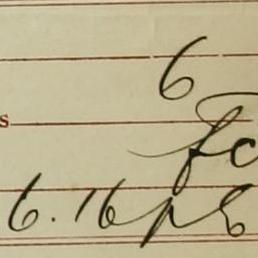 6
s
fc
6.16 p 6